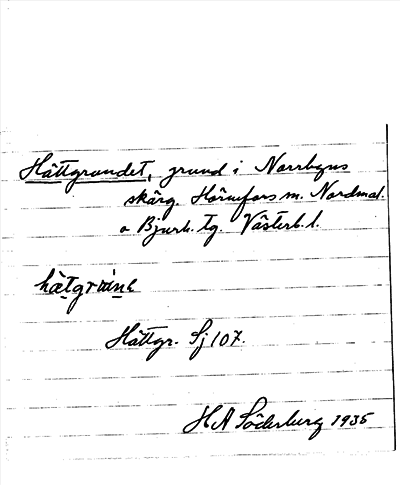 Hättgrundet, grund i Norrbyns
skärg. Hörnefors m. Nordmal.
o Bjurh. tg. Västerb. l.
Hättgr. Sj 107.
H A Söderberg 1935